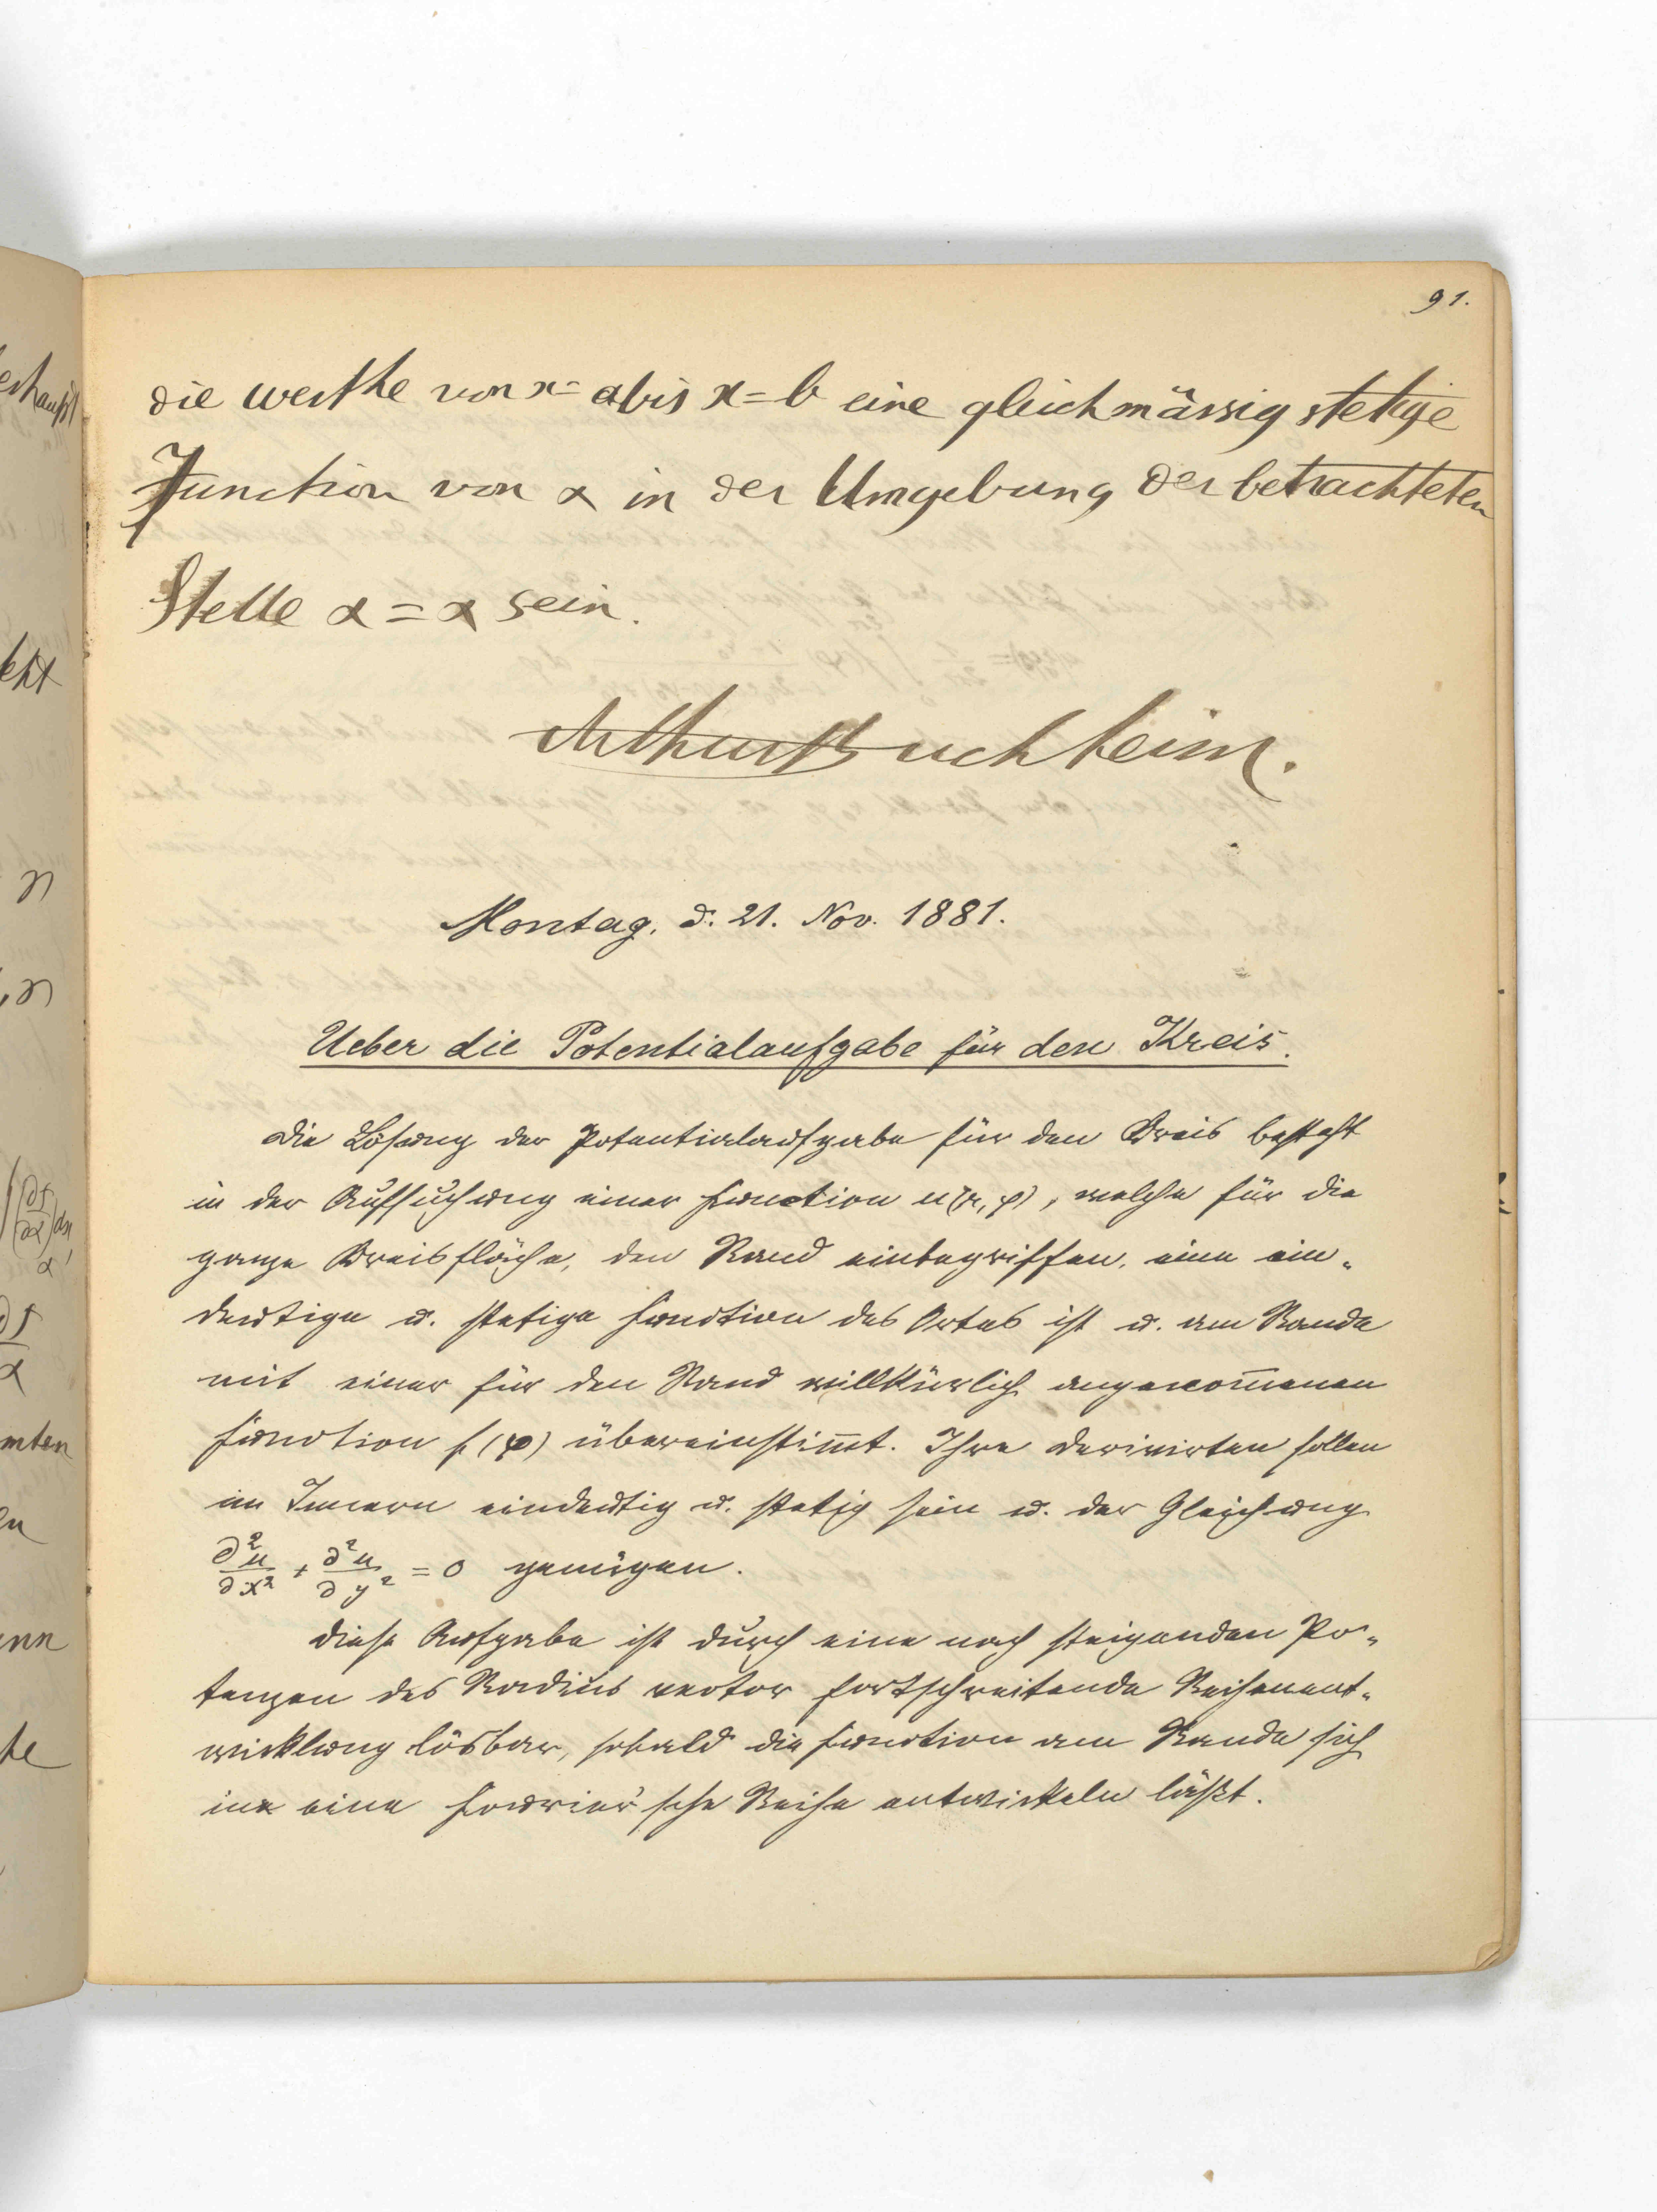 91.
die werthe von x = a bis x = b eine gleichmässig stetige
Function von α in der Umgebung der betrachteten
Stelle α = α sein.
Arthur Buchheim.
Montag, d. 21. Nov. 1881.
Ueber die Potentialaufgabe für den Kreis.
Die Lösung der Potentialaufgabe für den Kreis besteht
in der Aufsuchung einer Function u(r, φ), welche für die
ganze Kreisfläche, den Rand einbegriffen, eine ein-
deutige u. stetige Function des Ortes ist u. am Rande
mit einer für den Rand willkürlich angenom̅enen
Function f(φ) übereinstim̅t. Ihre Derivirten sollen
im Innern eindeutig u. stetig sein u. der Gleichung
∂²u/∂x² + ∂²u/∂y² = 0 genügen.
Diese Aufgabe ist durch eine nach steigenden Po-
tenzen des Radius vector fortschreitende Reihenent-
wicklung lösbar, sobald die Function am Rande sich
in eine Fourier'sche Reihe entwickeln läßt.